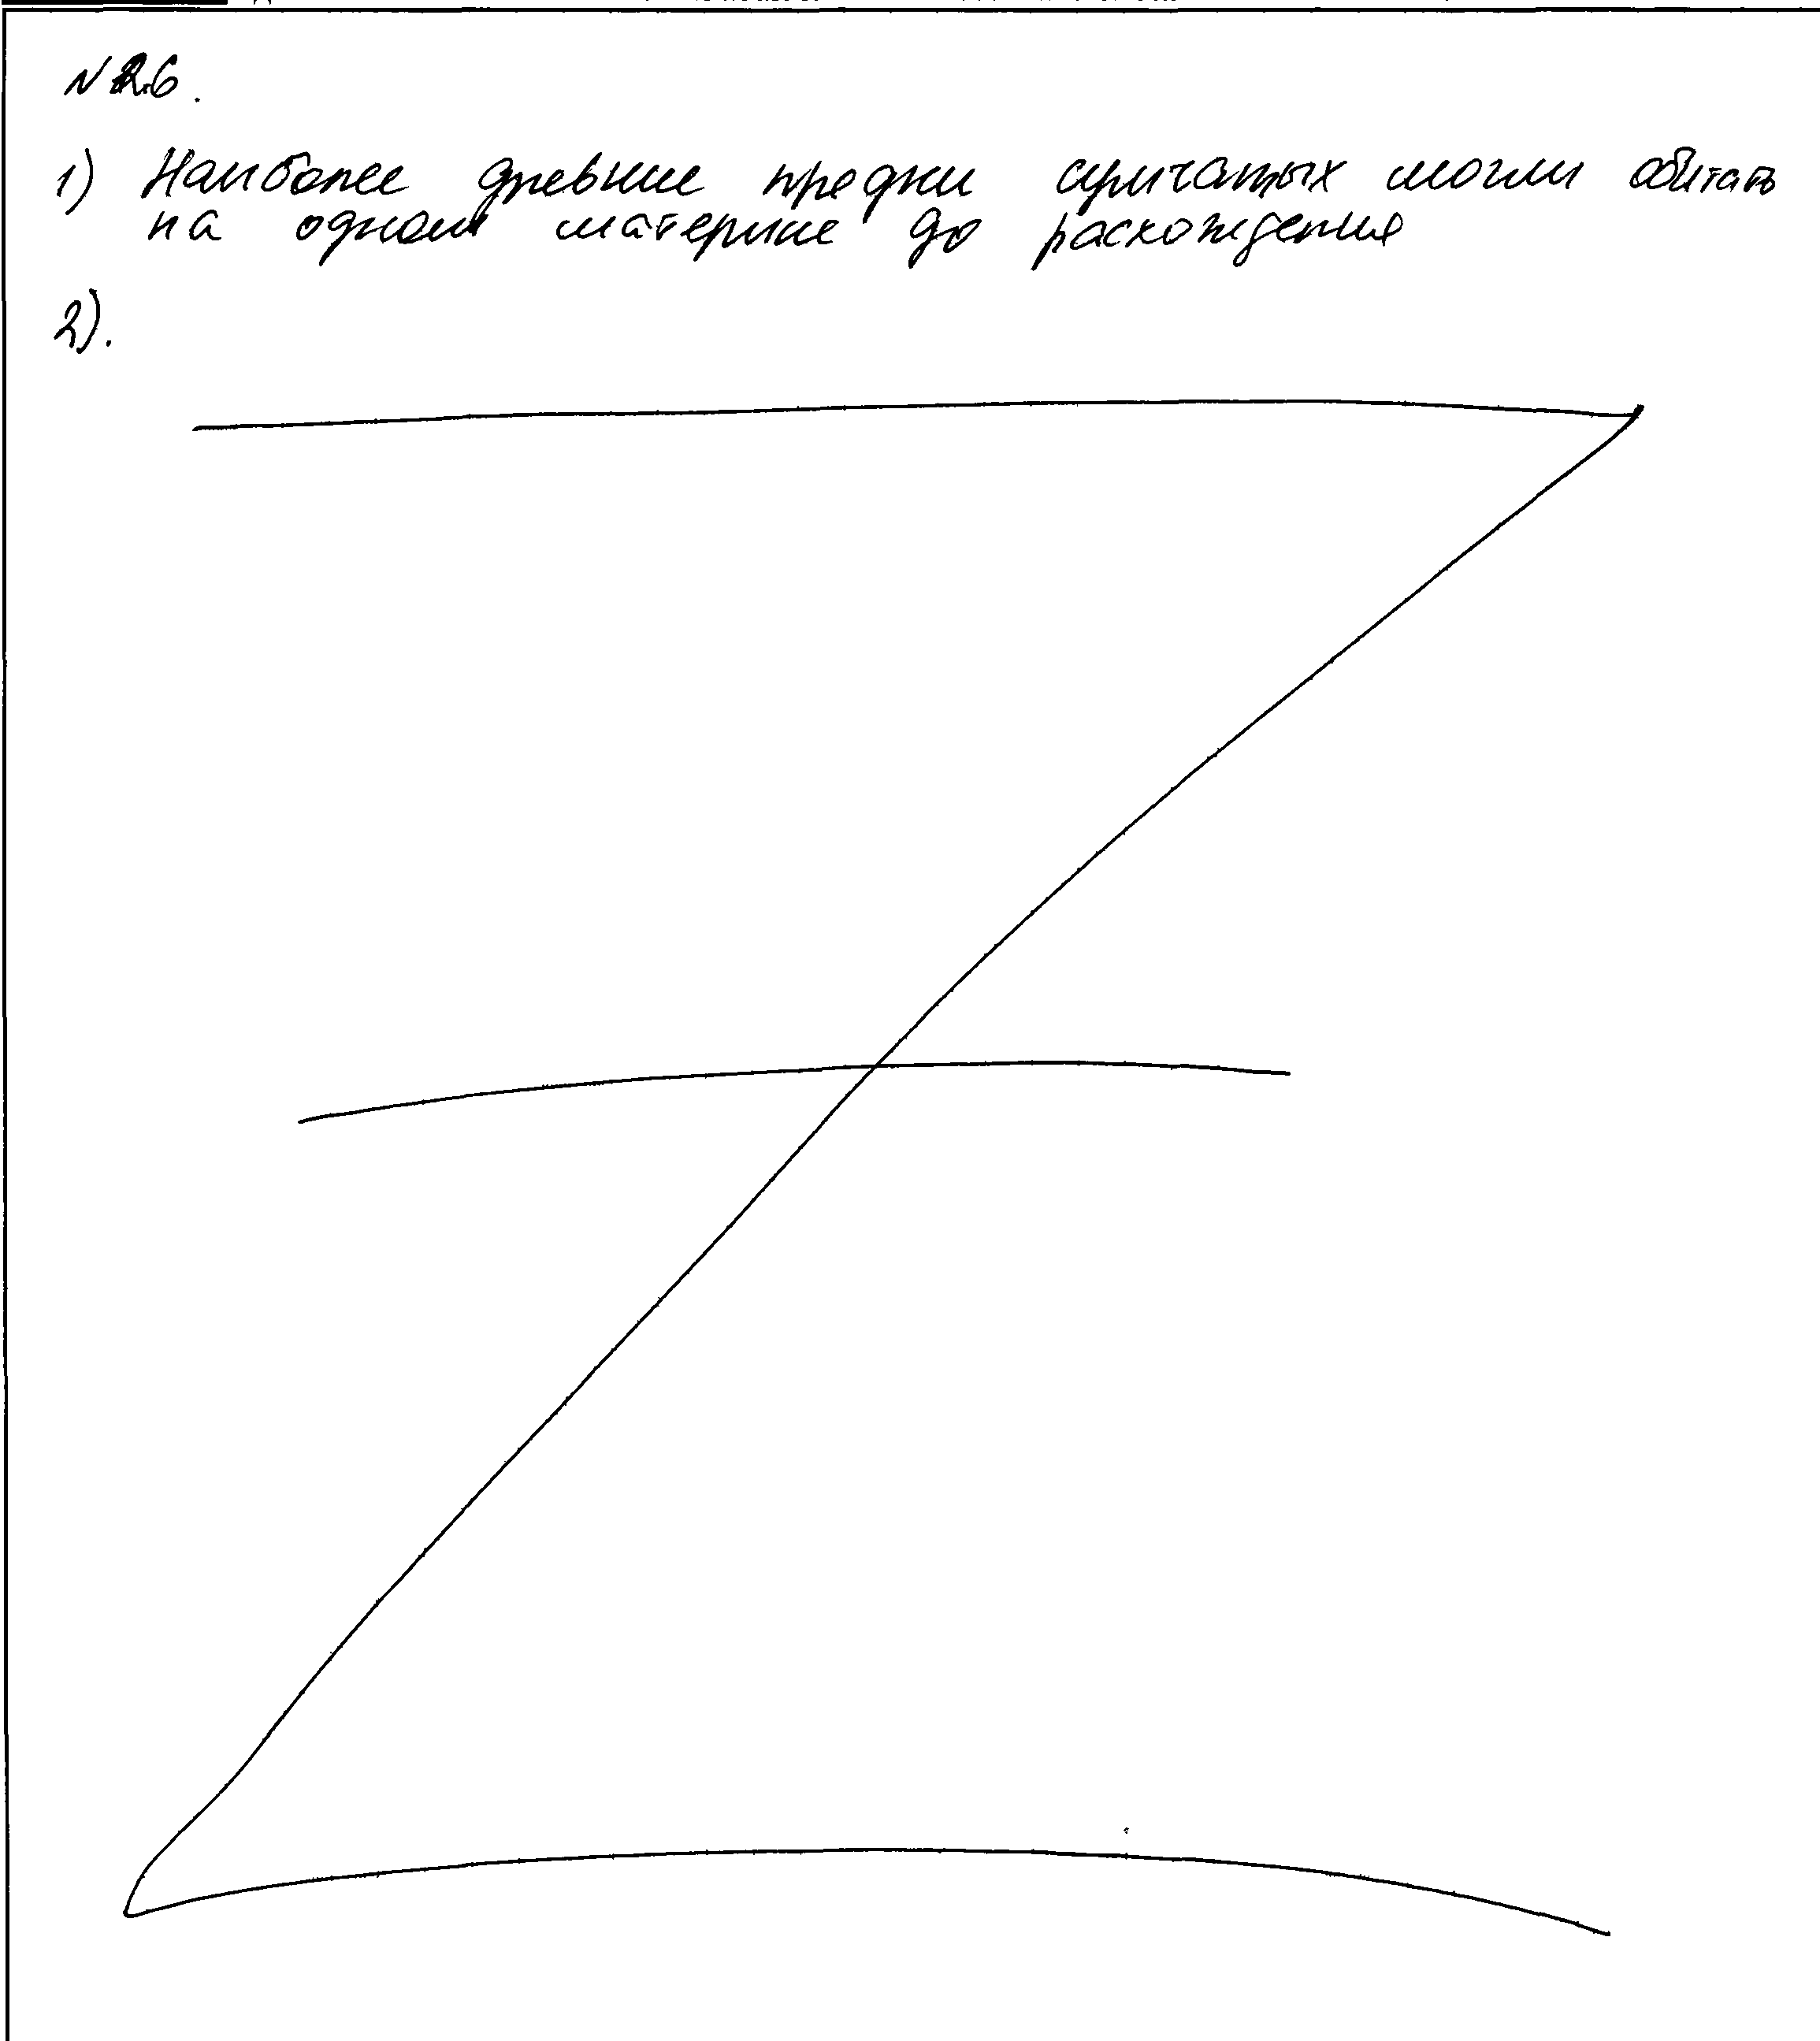 № 26.
1) Наиболее древние предки сумчатых могли обитать
на одном материке до расхождения
2).